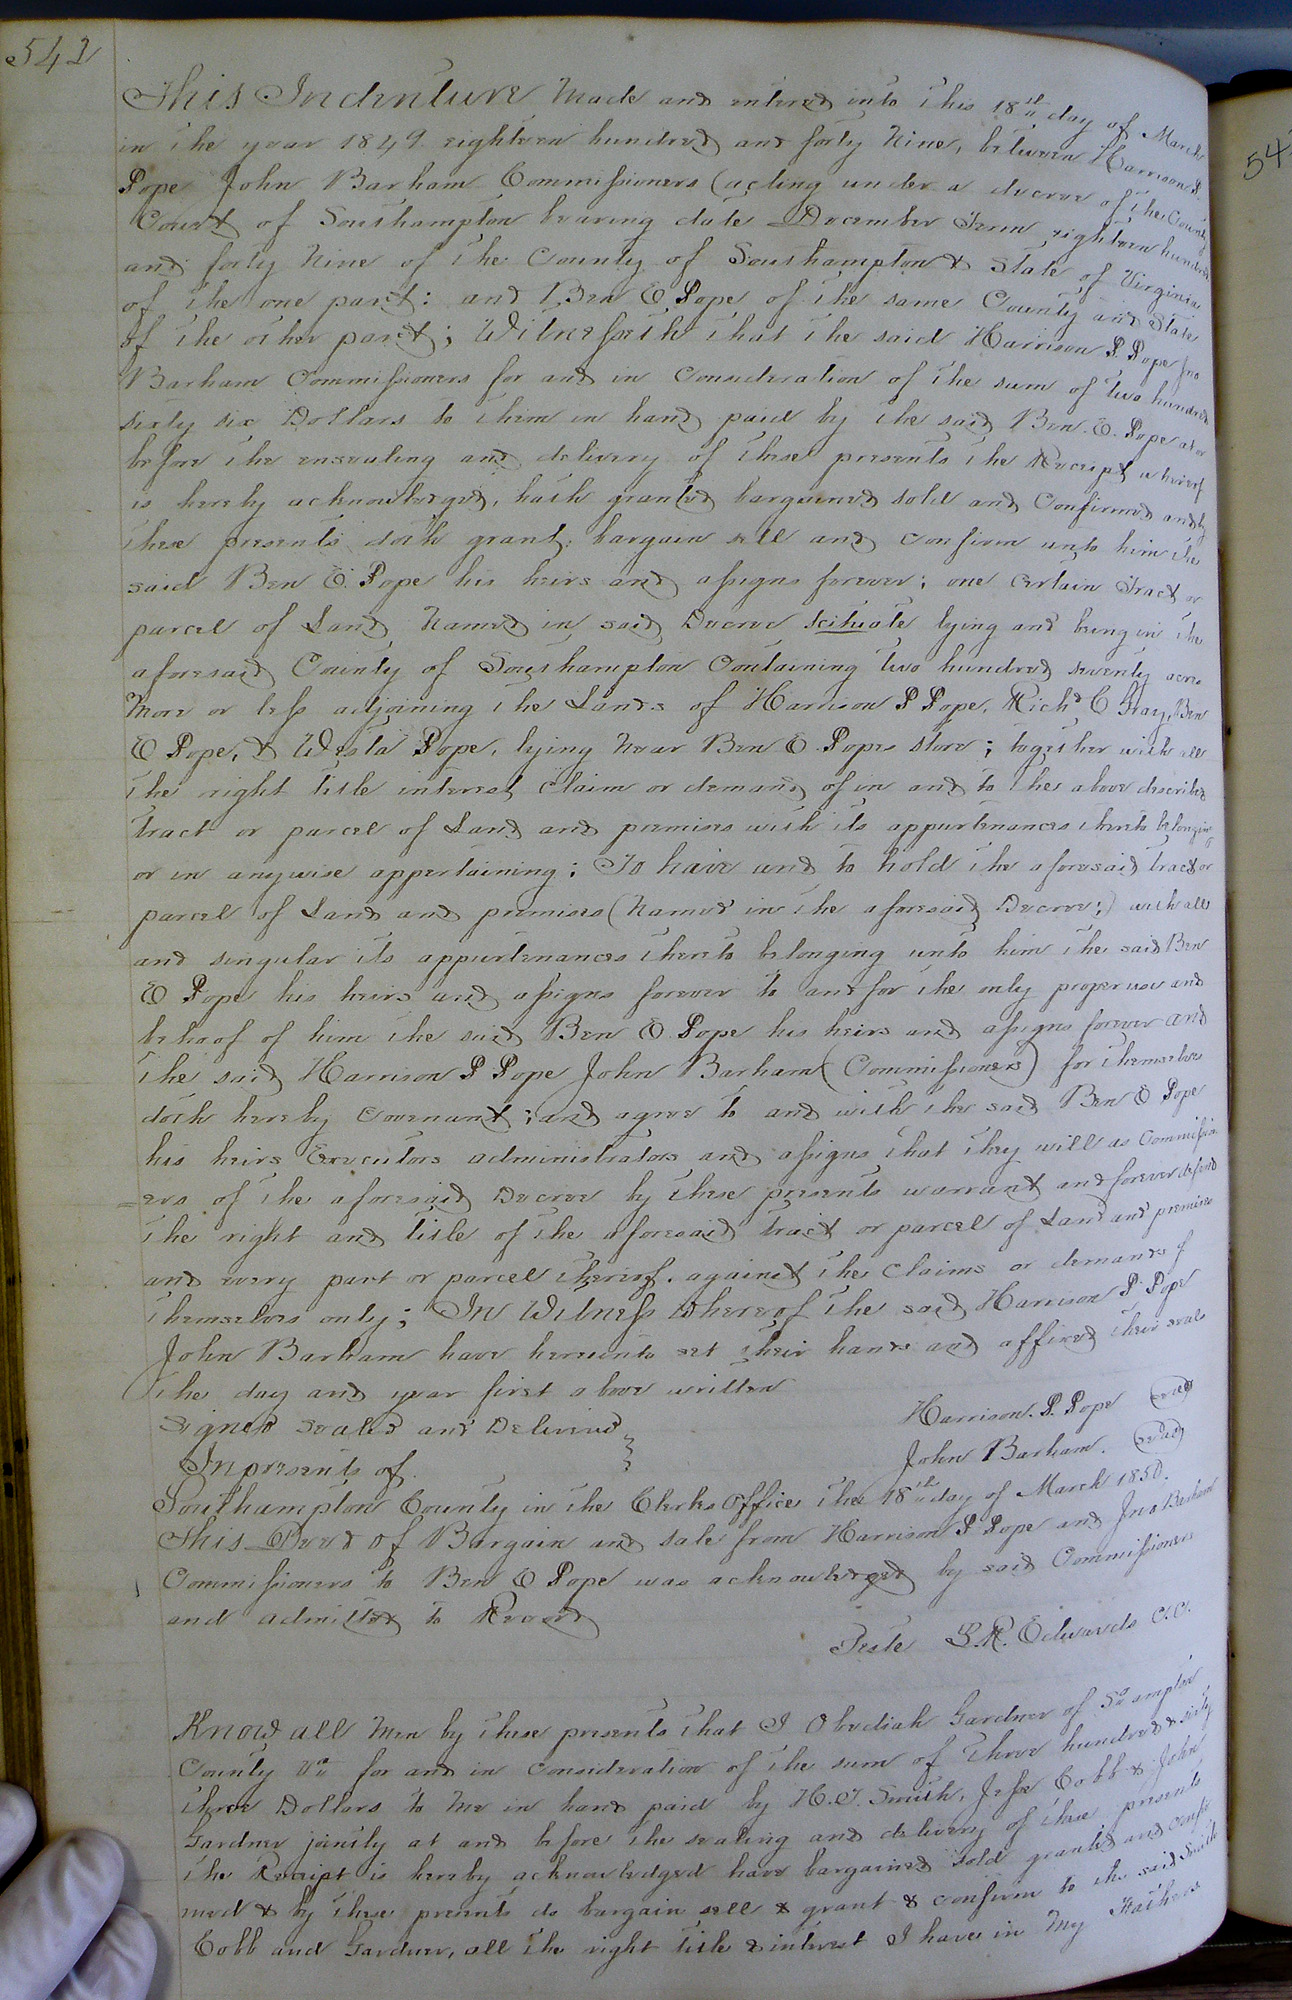 542
This Indenture Made and entered into this 18th day of March
in the year 1849 eighteen hundred and forty Nine, between Harrison P.
Pope John Barham Commissioners (acting under a decree of the County
Court of Southampton bearing date December Term eighteen hundred
and forty Nine of the County of Southampton & State of Virginia
of the one part: and Ben E Pope of the same County and State
of the other part; Witnesseth that the said Harrison P. Pope Jno
Barham Commissioners for and in Consideration of the sum of two hundred
sixty six Dollars to them in hand paid by the said Ben. E. Pope at or
before the ensealing and delivery of these presents the Receipt whereof
is hereby acknowledged, hath granted bargained sold and Confirmed and by
these presents doth grant, bargain sell and confirm unto him the
said Ben E. Pope his heirs and assigns forever; one certain Tract or
parcel of Land Named in said Decree Scituate lying and being in the
aforesaid County of Southampton Containing two hundred seventy acres
More or less adjoining the Lands of Harrison P Pope, Richd C Gray, Ben
E Pope, & Westa Pope, lying Near Ben E. Popes store; together with all
the right title interest, Claim or demand of in and to the above described
tract or parcel of Land and premises with its appurtenances thereto belonging
or in anywise appertaining; To have and to hold the aforesaid tract or
parcel of Land and premises (Named in the aforesaid Decree;) with all
and singular its appurtenances thereto belonging unto him the said Ben
E Pope his heirs and assigns forever to and for the only proper use and
behoof of him the said Ben E Pope his heirs and assigns forever and
the said Harrison P Pope John Barham (Commissioners) for themselves
doth hereby Covenant; and agree to and with the said Ben E Pope
his heirs Executors administrators and assigns that they will as Commission
=ers of the aforesaid Decree by these presents warrant and forever defend
the right and title of the aforesaid tract or parcel of Land and premises
and every part or parcel thereof, against the Claims or demands of
themselves only; In Witness Whereof the said Harrison P Pope
John Barham have hereunto set their hands and affixed their seals
the day and year first above written
Signed Sealed and Delivered
In presents of.
Harrison. P. Pope (seal)
John Barham. (seal)
Southampton County in the Clerks Office the 18th day of March 1850.
This Deed of Bargain and sale from Harrison P Pope and Jno Barham
Commissioners to Ben E Pope was acknowledged by said Commissioners
and admitted to Record
Teste L. R. Edwards C.C.
Know all Men by these presents that I Obediah Gardner of So ampton
County Va for and in consideration of the sum of three hundred & sixty
three Dollars to Me in hand paid by H. T. Smith, Jesse Cobb & John
Gardner jointly at and before the sealing and delivery of these presents
the Receipt is hereby acknowledged have bargained sold granted and confir
med & by these presents do bargain sell & grant & confirm to the said Smith
Cobb and Gardner, all the right title & interest I have in My Fathers